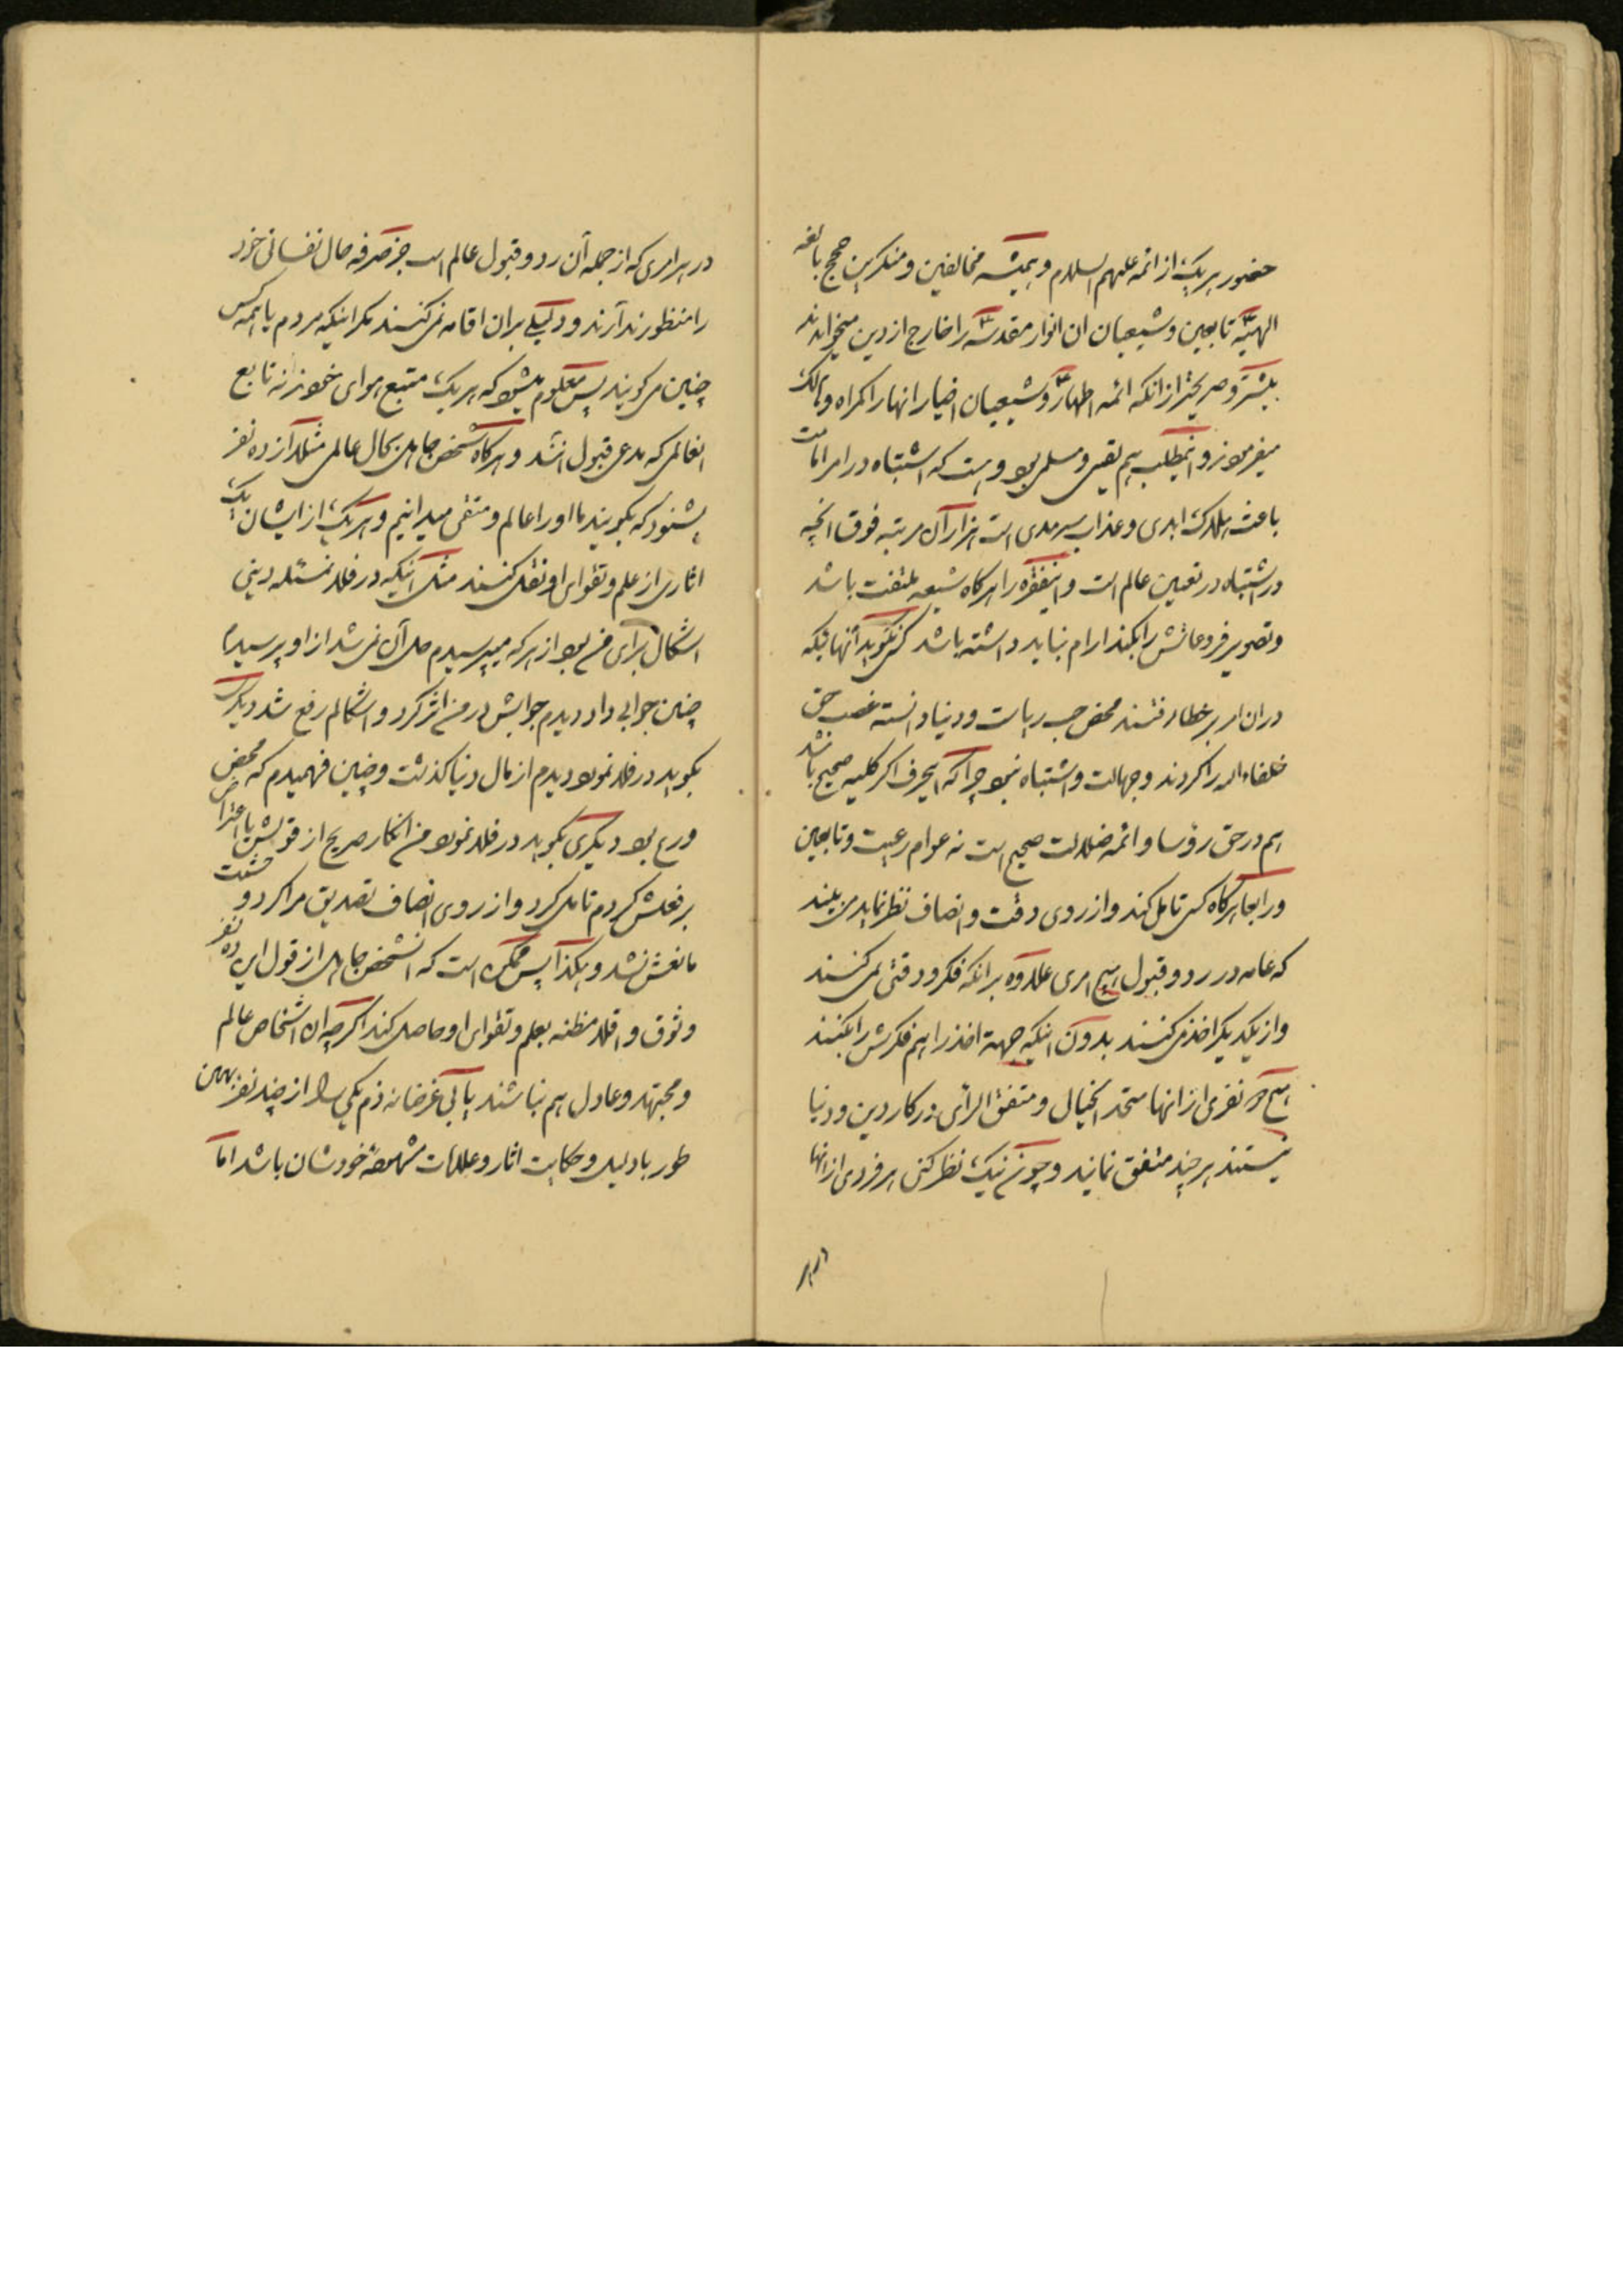 حضور هریک از ائمه علیهم السلام و همیشه مخالفین و منکرین حجج بالغه
الهیّه تابعین و شیعیان ان انوار مقدسهٔ را خارج از دین میخواندند
بیشتر و صریحتر از انکه ائمه اطهارؑ و شیعیان اخیار انها را کمراه و هالک
میفرمودند و اینمطلب هم یقینی و مسلمی بود و هست که اشتباه در امر امامت
باعث هلاکت ابدی و عذاب سرمدی است هزاران مرتبه فوق انچه
در اشتباه در تعیین عالم است و اینفقره را هرکاه شیعه ملتفت باشد
و تصویر فروعاتش را بکند ارام نباید داشته باشد کسی نکوید انهائیکه
در ان امر بر خطا رفتند محض حب ریاست و دنیا دانسته غصب حق
خلفاء الله را کردند و جهالت و اشتباه نبود چرا که اینحرف اکر کلیه صحیح باشد
هم در حق رؤسا و ائمه ضلالت صحیح است نه عوام رعیت و تابعین
و رابعا هرکاه کسی تامل کند و از روی دقت و انصاف نظر نماید می بیند
که عامه در رد و قبول هیچ امری علاوه بر انکه فکر و دقتی نمی کنند
و از یکدیکر اخذ می کنند بدون اینکه جهة اخذ را هم فکرش را بکنند
هیچ دو نفری از انها متحد الخیال و متفق الرأی در کار دین و دنیا
نیستند هر چند متفق نمایند و چون نیک نظر کنی هر فردی از انها
در هر
در هر امری که از جمله آن رد و قبول عالم است جز صرفه حال نفسانی خود
را منظور ندارند و دلیلی بران اقامه نمی کنند مکر اینکه مردم یا همه کس
چنین می کویند پس معلوم میشود که هریک متبع هوای خودند نه تابع
انعالمی که مدعی قبول اشند و هرکاه شخص جاهل بحال عالمی مثلا از ده نفر
بشنود که بکویند ما او را عالم و متقی میدانیم و هریک از ایشان یک
اثاری از علم و تقوای او نقل کنند مثل اینکه در فلان مسئله دینی
اشکال برای من بود از هر که میپرسیدم حل آن نمی شد از او پرسیدم
چنین جوابی داد دیدم جوابش در من اثر کرد و اشکالم رفع شد دیکری
بکوید در فلان مورد دیدم از مال دنیا کذشت و چنین فهمیدم که محض
ورع بود دیکری بکوید در فلان مورد من انکار صریح از قولش یا اعتراض
بر فعلش کردم تامل کرد و از روی انصاف تصدیق مرا کرد و خشیت
مانعش نشد و هکذا پس ممکن است که انشخص جاهل از قول این ده نفر
وثوق و اقلا مظنه بعلم و تقوای او حاصل کند اکرچه ان اشخاص عالم
و مجتهد و عادل هم نباشند یا بی غرضانه ذم یکی را از چند نفر بهمین
طور با دلیل و حکایت اثار و علامات مشهوده خودشان باشد اما